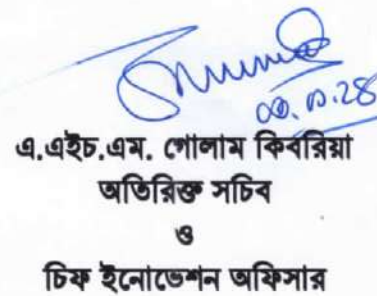 এ.এইচ.এম. গোলাম কিবরিয়া
অতিরিক্ত সচিব
ও
চিফ ইনোভেশন অফিসার